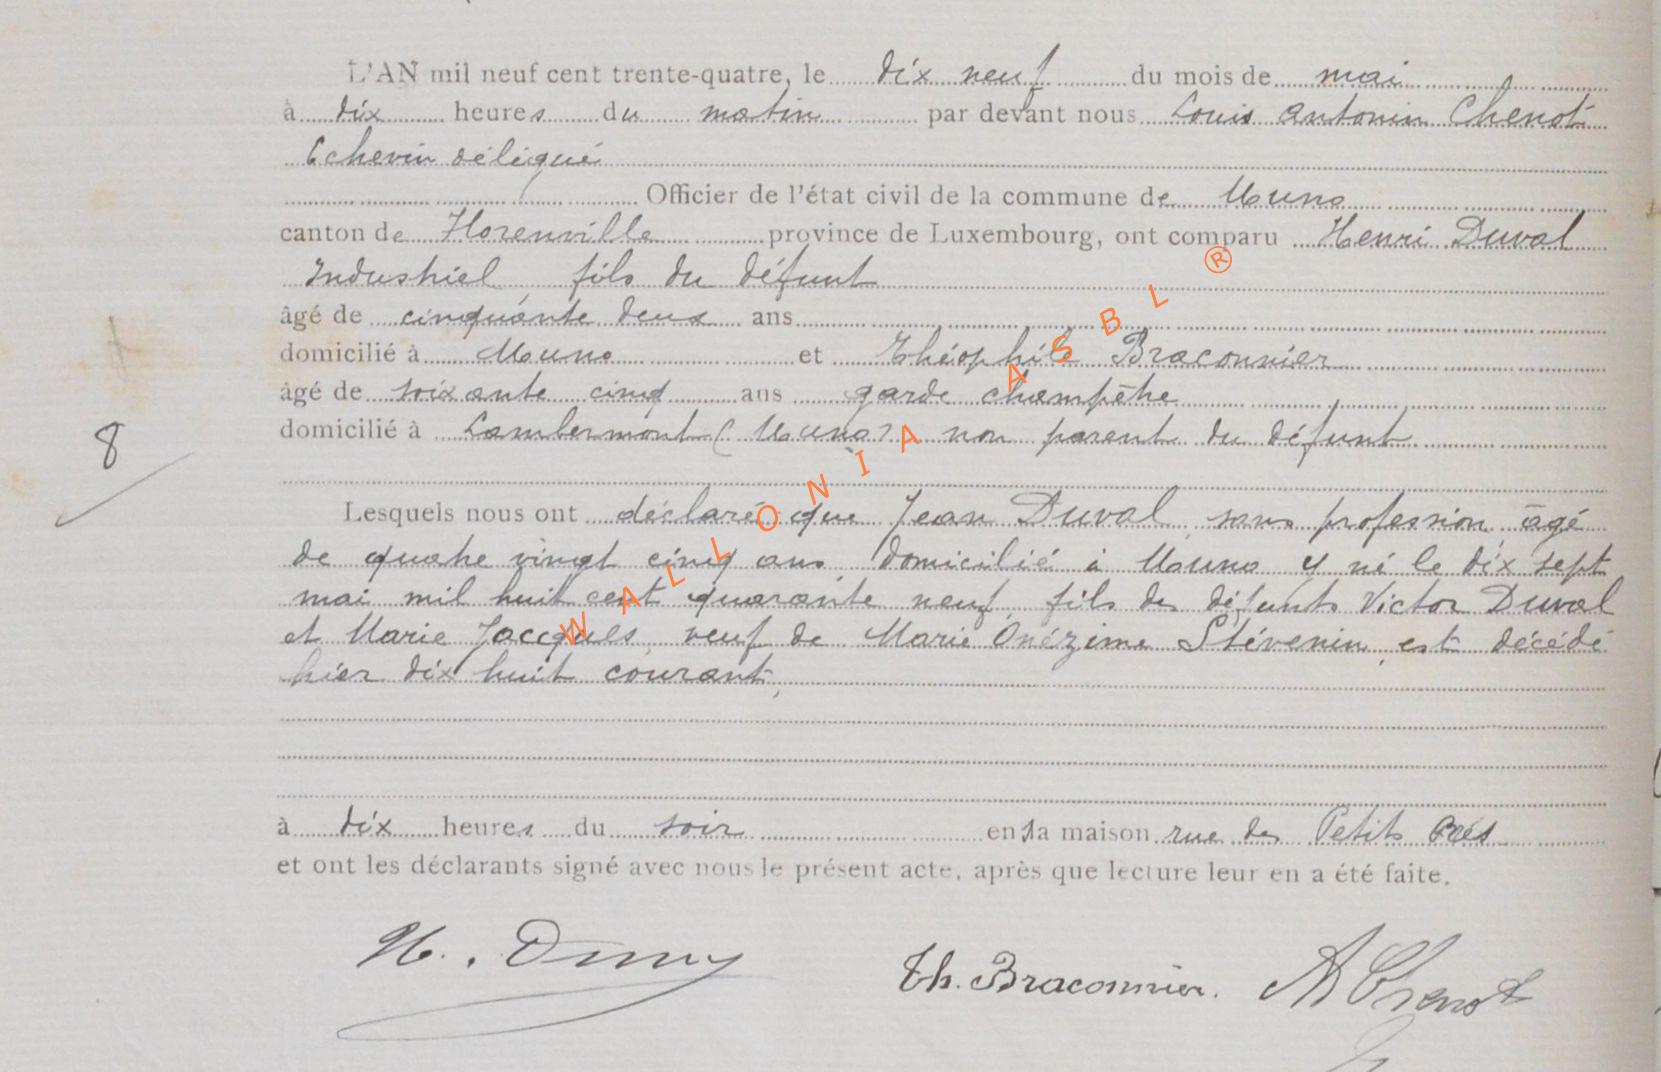 L'AN mil neuf cent trente-quatre, le dix neuf du mois de mai
à dix heures du matin par devant nous Louis Antonin Chenot
Echevin délégué
Officier de l'état civil de la commune de Muno
canton de Florenville province de Luxembourg, ont comparu Henri Duval
Industriel fils du défunt
âgé de cinquante deux ans
domicilié à Muno et Théophile Braconnier
âgé de soixante cinq ans garde champêtre
domicilié à Lambermont (Muno) non parent du défunt
8
Lesquels nous ont déclaré que Jean Duval sans profession âgé
de quatre vingt cinq ans domicilié à Muno y né le dix sept
mai mil huit cent quarante neuf, fils des défunts Victor Duval
et Marie Jacques, veuf de Marie Onézime Stévenin, est décédé
hier dix huit courant,
à dix heures du soir en sa maison rue des Petits Prés
et ont les déclarants signé avec nous le présent acte, après que lecture leur en a été faite.
H. Duval Th. Braconnier. A Chenot
WALLONIA ASBL ®